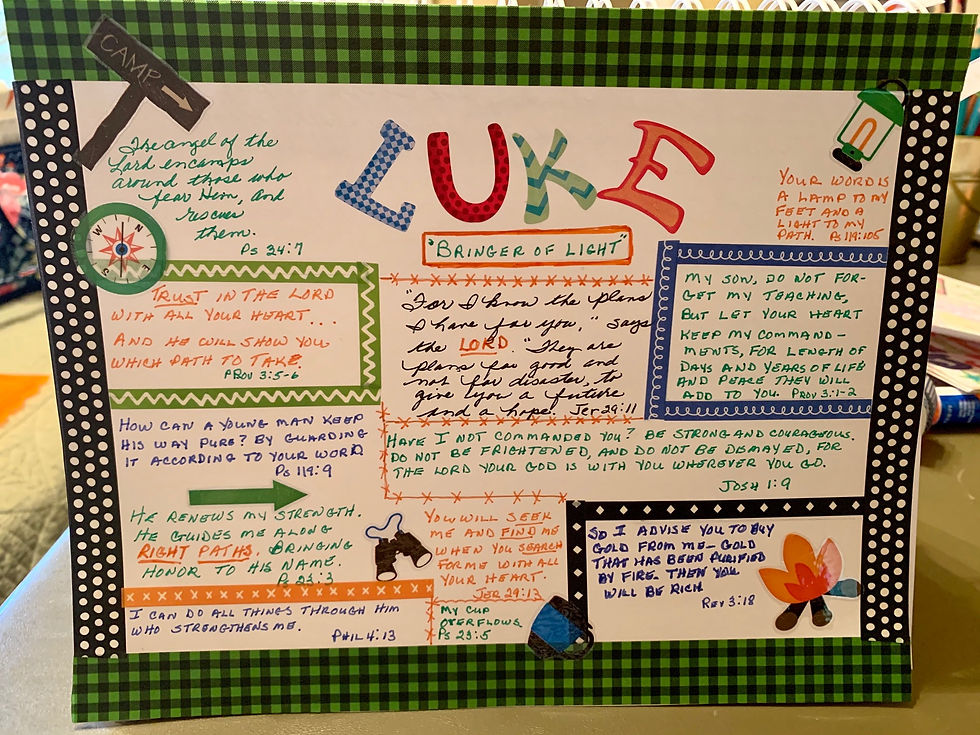 CAMP
LUKE
"BRINGER OF LIGHT"
The angel of the
Lord encamps
around those who
fear Him, and
rescues
them.
Ps 34:7
N
E
S
W
YOUR WORD IS
A LAMP TO MY
FEET AND A
LIGHT TO MY
PATH. Ps 119:105
TRUST IN THE LORD
WITH ALL YOUR HEART....
AND HE WILL SHOW YOU
WHICH PATH TO TAKE.
PROV 3:5-6
"For I know the plans
I have for you," says
the LORD. "They are
plans for good and
not for disaster, to
give you a future
and a hope. Jer 29:11
MY SON, DO NOT FOR-
GET MY TEACHING,
BUT LET YOUR HEART
KEEP MY COMMAND-
MENTS, FOR LENGTH OF
DAYS AND YEARS OF LIFE
AND PEACE THEY WILL
ADD TO YOU. PROV 3:1-2
HOW CAN A YOUNG MAN KEEP
HIS WAY PURE? BY GUARDING
IT ACCORDING TO YOUR WORD
Ps 119:9
HAVE I NOT COMMANDED YOU? BE STRONG AND COURAGEOUS.
DO NOT BE FRIGHTENED, AND DO NOT BE DISMAYED, FOR
THE LORD YOUR GOD IS WITH YOU WHEREVER YOU GO.
JOSH 1:9
HE RENEWS MY STRENGTH.
HE GUIDES ME ALONG
RIGHT PATHS, BRINGING
HONOR TO HIS NAME.
Ps 23:3
YOU WILL SEEK
ME AND FIND ME
WHEN YOU SEARCH
FOR ME WITH ALL
YOUR HEART.
JER 29:13
SO I ADVISE YOU TO BUY
GOLD FROM ME - GOLD
THAT HAS BEEN PURIFIED
BY FIRE. THEN YOU
WILL BE RICH
REV 3:18
I CAN DO ALL THINGS THROUGH HIM
WHO STRENGTHENS ME.
PHIL 4:13
MY CUP
OVERFLOWS
Ps 23:5